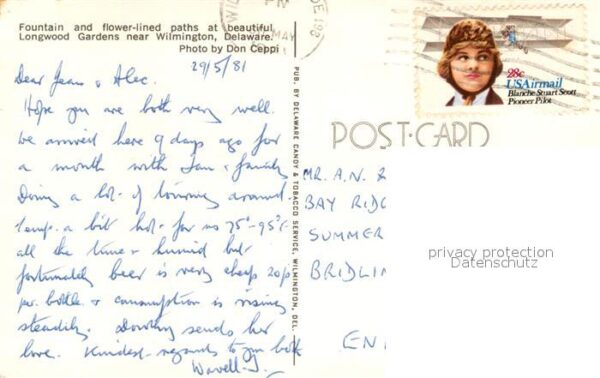 Fountain and flower-lined paths at beautiful
Longwood Gardens near Wilmington, Delaware.
Photo by Don Ceppi
29/5/81
Dear Jean & Alec.
Hope you are both very well.
We arrived here 9 days ago for
a month with Ian & family
Doing a lot of touring around.
Temp. a bit hot for us 75°-95°F.
all the time & humid but
fortunately beer is very cheap 20p
per bottle & consumption is rising
steadily. Dorothy sends her
love. Kindest regards to you both
PUB. BY DELAWARE CANDY & TOBACCO SERVICE, WILMINGTON, DEL.
PM
MAY
DE 198
28c
USAirmail
Blanche Stuart Scott
Pioneer Pilot
POST-CARD
MR. A.N.
BAY RIDG
SUMMER
BRIDLIN
EN
privacy protection
Datenschutz